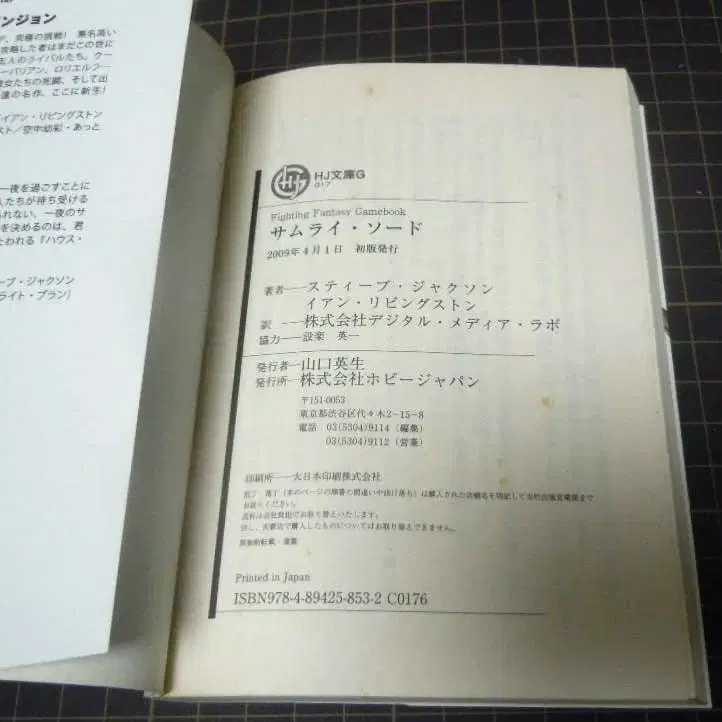 ンジョン
究極の挑戦! 悪名高い
攻略した者はまだこの世に
五人のライバルたち。クー
ーバリアン、ロリエルフ…
彼女たちの死闘、そして出
達の名作、ここに新生!
イアン・リビングストン
スト/空中幼彩・あっと
一夜を過ごすことに
人たちが待ち受ける
れない、一夜のサ
を決めるのは、君
とわれる『ハウス・
ーブ・ジャクソン
ライト・プラン)
HJ文庫G
017
Fighting Fantasy Gamebook
サムライ・ソード
2009年4月1日 初版発行
著者──スティーブ・ジャクソン
イアン・リビングストン
訳 ──株式会社デジタル・メディア・ラボ
協力──設楽 英一
発行者─山口英生
発行所─株式会社ホビージャパン
〒151-0053
東京都渋谷区代々木2-15-8
電話 03(5304)9114(編集)
03(5304)9112(営業)
印刷所──大日本印刷株式会社
乱丁・落丁(本のページの順番の間違いや抜け落ち)は購入された店舗名を明記して当社出版営業課まで
お送りください。
送料は当社負担でお取り替えいたします。
但し、古書店で購入したものについてはお取り替えできません。
禁無断転載・複製
Printed in Japan
ISBN978-4-89425-853-2 C0176